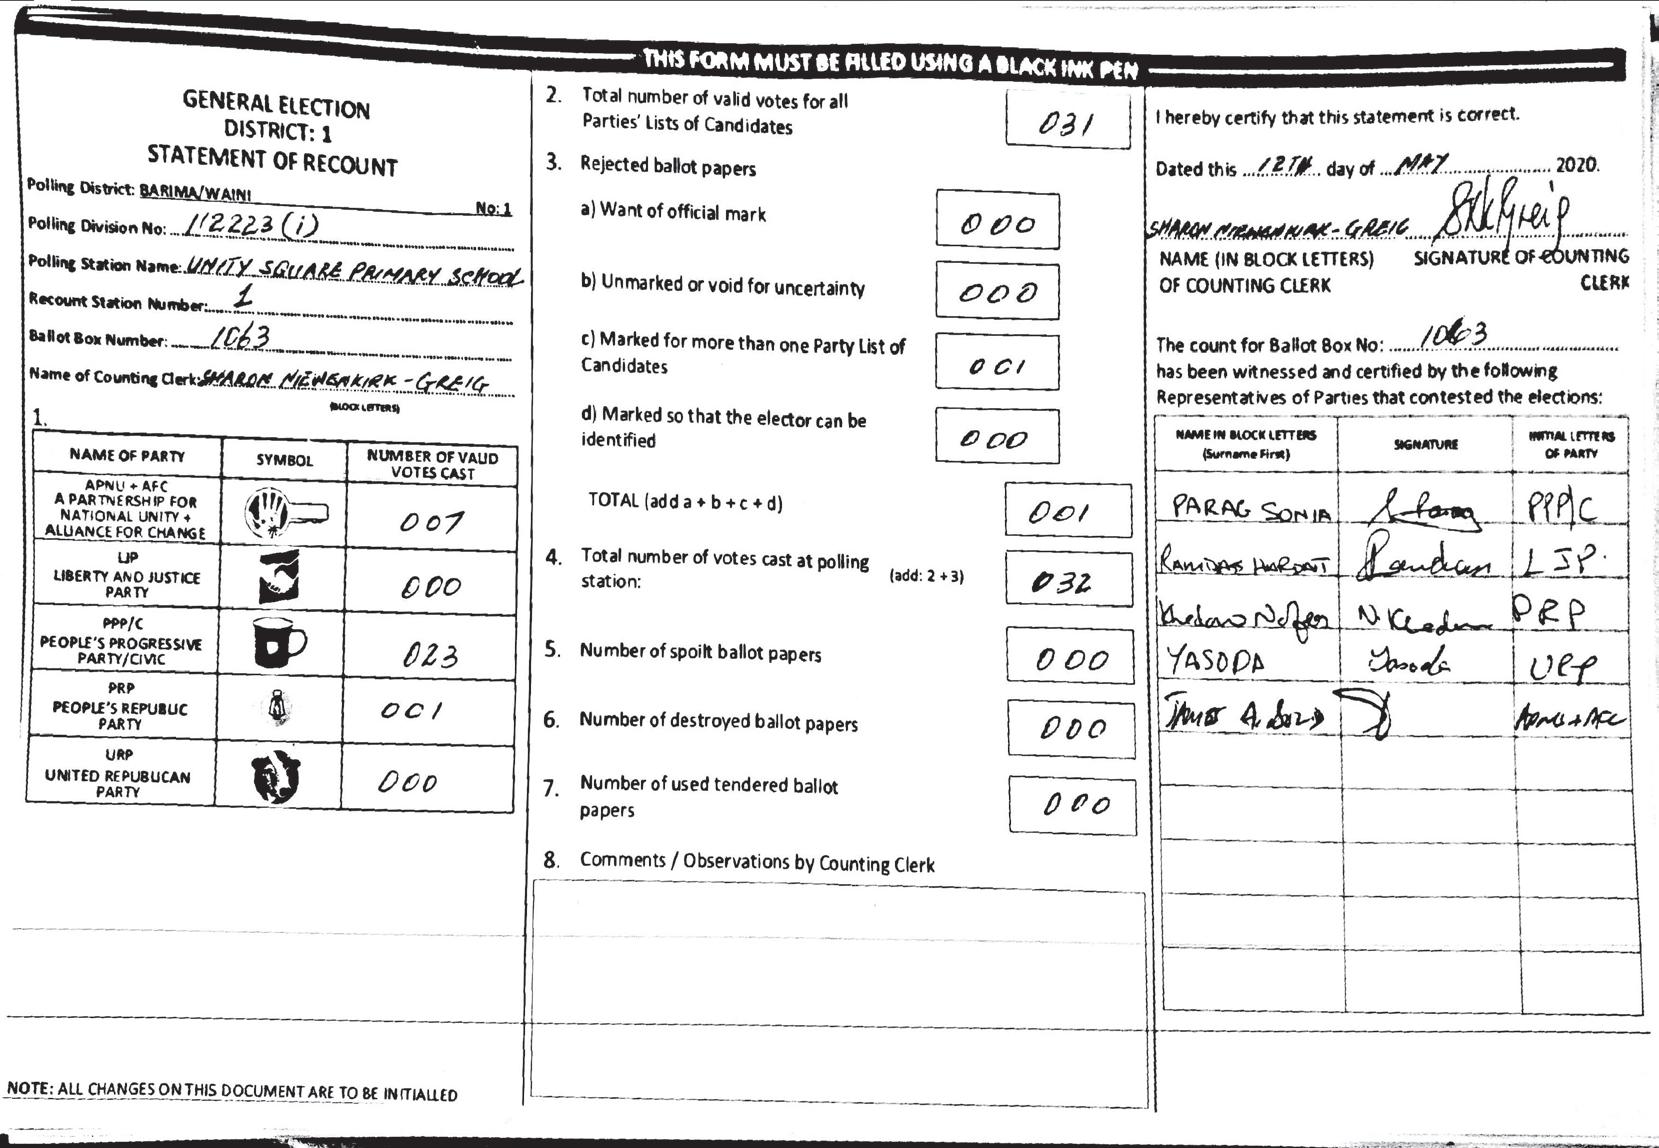 THIS FORM MUST BE FILLED USING A BLACK INK PEN
GENERAL ELECTION
DISTRICT: 1
STATEMENT OF RECOUNT
Polling District: BARIMA/WAINI No: 1
Polling Division No: 112223 (i)
Polling Station Name: UNITY SQUARE PRIMARY SCHOOL
Recount Station Number: 1
Ballot Box Number: 1063
Name of Counting Clerk: SHARON NIEWENKIRK-GREIG
(BLOCK LETTERS)
1.
NAME OF PARTY SYMBOL NUMBER OF VALID VOTES CAST
APNU + AFC
A PARTNERSHIP FOR
NATIONAL UNITY +
ALLIANCE FOR CHANGE
007
LJP
LIBERTY AND JUSTICE
PARTY
000
PPP/C
PEOPLE'S PROGRESSIVE
PARTY/CIVIC
023
PRP
PEOPLE'S REPUBLIC
PARTY
001
URP
UNITED REPUBLICAN
PARTY
000
NOTE: ALL CHANGES ON THIS DOCUMENT ARE TO BE INITIALLED
2. Total number of valid votes for all
Parties' Lists of Candidates
031
3. Rejected ballot papers
a) Want of official mark 000
b) Unmarked or void for uncertainty 000
c) Marked for more than one Party List of
Candidates
001
d) Marked so that the elector can be
identified
000
TOTAL (add a + b + c + d) 001
4. Total number of votes cast at polling
station: (add: 2 + 3) 032
5. Number of spoilt ballot papers 000
6. Number of destroyed ballot papers 000
7. Number of used tendered ballot
papers
000
8. Comments / Observations by Counting Clerk
I hereby certify that this statement is correct.
Dated this 12TH day of MAY 2020.
SHARON NIEWENKIRK-GREIG SNKGreig
NAME (IN BLOCK LETTERS) SIGNATURE OF COUNTING
OF COUNTING CLERK CLERK
The count for Ballot Box No: 1063
has been witnessed and certified by the following
Representatives of Parties that contested the elections:
NAME IN BLOCK LETTERS
(Surname First)
SIGNATURE
INITIAL LETTERS
OF PARTY
PARAG SONIA PPP/C
RAMDAS LJP
PRP
YASODA Yasoda URP
JAMES A. APNU+AFC